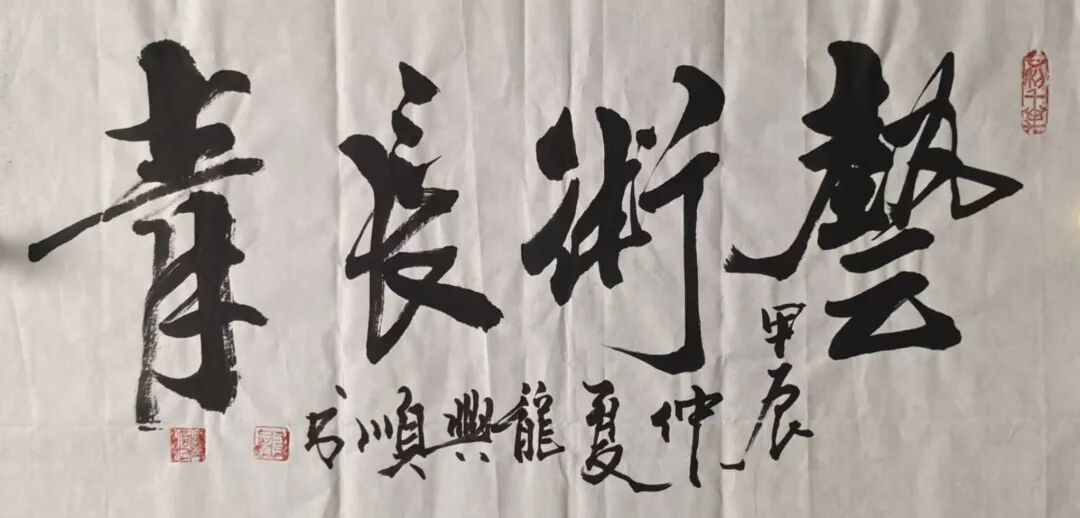 藝術長青
甲辰
仲夏龍興順书